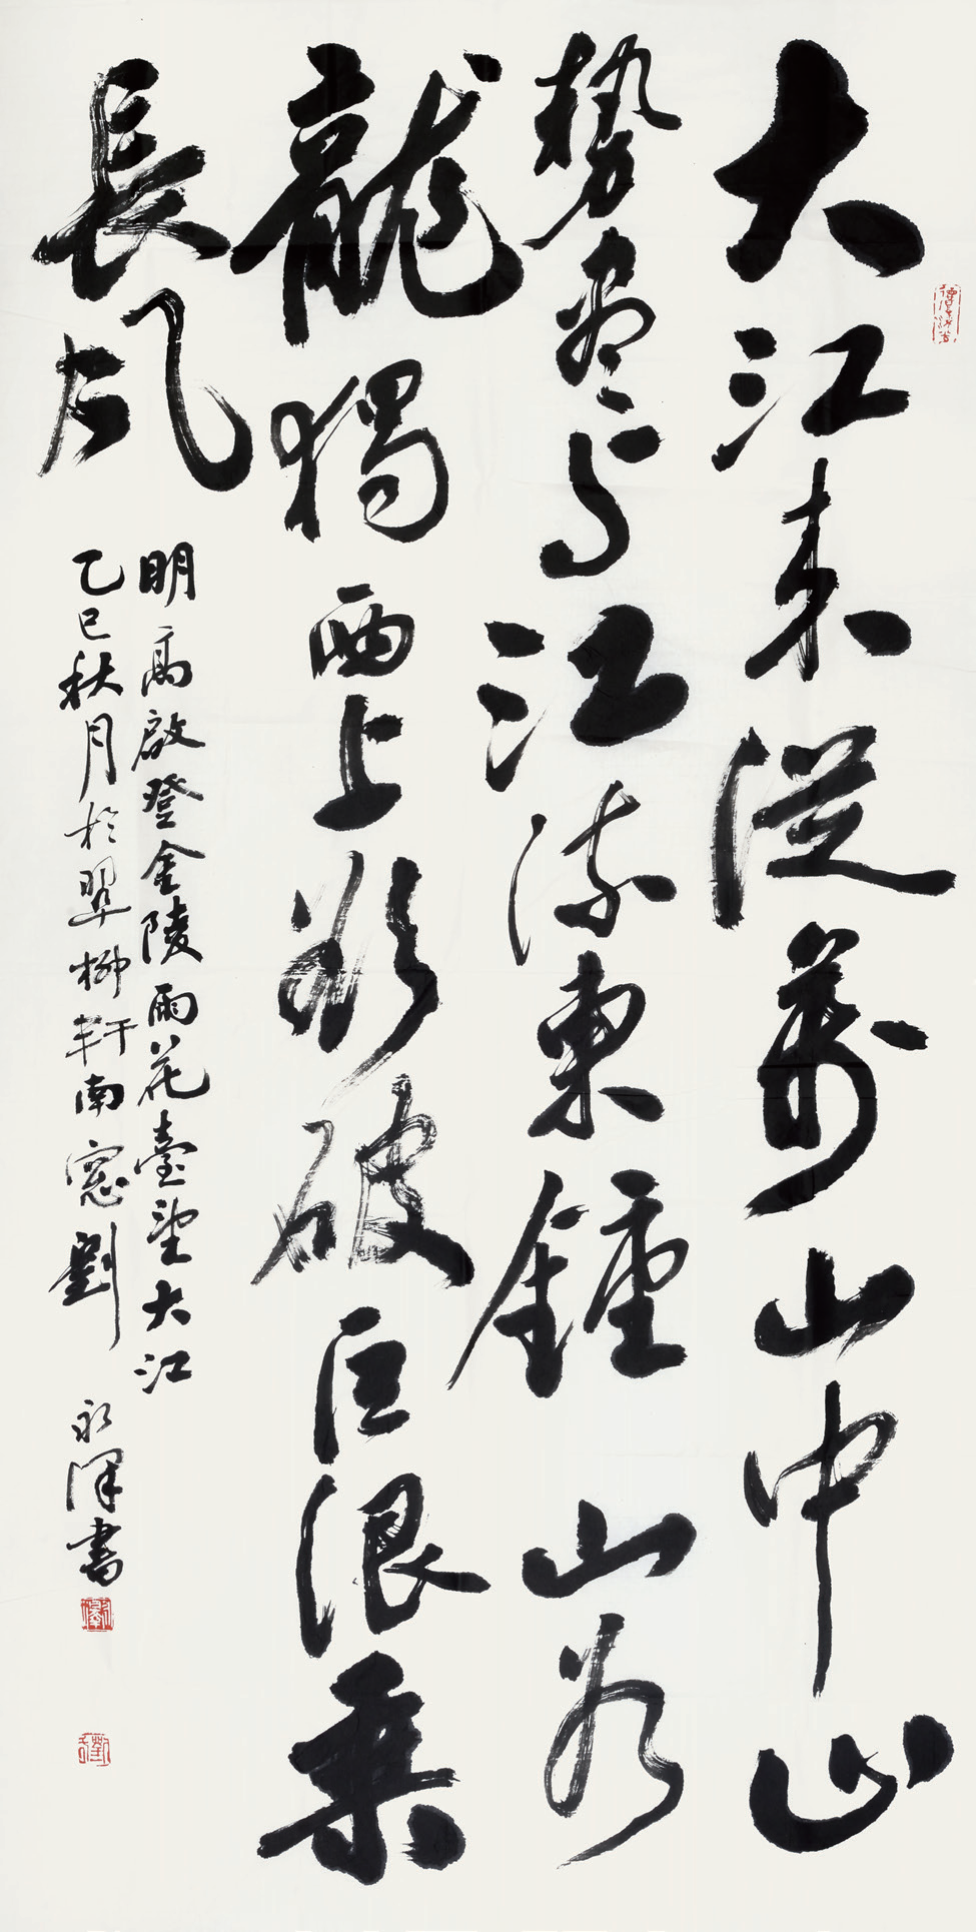 大江来從萬山中山
勢盡与江流東鍾山如
龍獨西上欲破巨浪乘
長風
明高啟登金陵雨花臺望大江
乙巳秋月於翠柳軒南窓劉永澤書